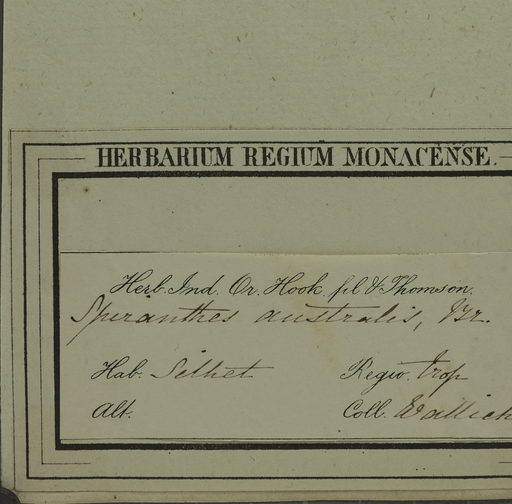 HERBARIUM REGIUM MONACENSE.
Herb. Ind. Or. Hook. fil. & Thomson.
Speranthes australis, Br.
Hab. Silhet Regio. trop
Alt. Coll. Wallich